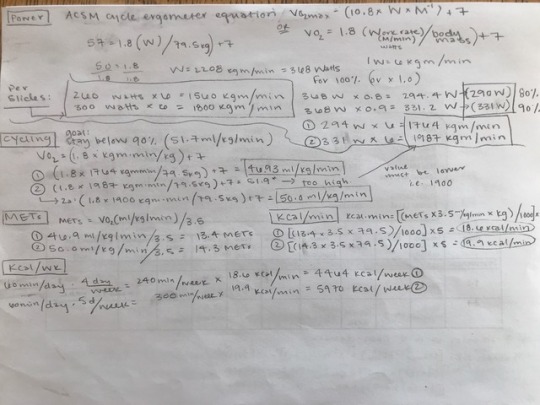 Power ACSM cycle ergometer equation: VO2max = (10.8 x W x M⁻¹) + 7
OR
57 = 1.8 (W) / 79.5kg + 7
VO2 = 1.8 (Work rate) / body mass) + 7
(M/min)
watts
50 = 1.8
1.8 1.8
W = 2208 kgm/min = 368 watts
1W = 6 kgm/min
For 100% (or x 1.0)
per slides:
260 watts x 6 = 1560 kgm/min
300 watts x 6 = 1800 kgm/min
368 W x 0.8 = 294.4 W → (290W) 80%
368 W x 0.9 = 331.2 W → (331W) 90%
① 294 W x 6 = 1764 kgm/min
② 331 W x 6 = 1987 kgm/min
Cycling goal: Stay below 90% (51.7 ml/kg/min)
VO2 = (1.8 x kgm·min/kg) + 7
① (1.8 x 1764 kgm·min/79.5kg) + 7 = 46.93 ml/kg/min
② (1.8 x 1987 kgm·min/79.5kg) + 7 = 51.9* → too high
value must be lower i.e. 1900
(1.8 x 1900 kgm·min/79.5kg) + 7 = 50.0 ml/kg/min
METs METs = VO2(ml/kg/min)/3.5
① 46.9 ml/kg/min/3.5 = 13.4 METs
② 50.0 ml/kg/min/3.5 = 14.3 METs
Kcal/min kcal·min = [(METs x 3.5 x kg)/1000] x 5
① [(13.4 x 3.5 x 79.5)/1000] x 5 = 18.6 kcal/min
② [(14.3 x 3.5 x 79.5)/1000] x 5 = 19.9 kcal/min
Kcal/wk
60min/day · 4day/week = 240min/week x 18.6 kcal/min = 4464 kcal/week ①
60min/day · 5d/week = 300min/week x 19.9 kcal/min = 5970 kcal/week ②